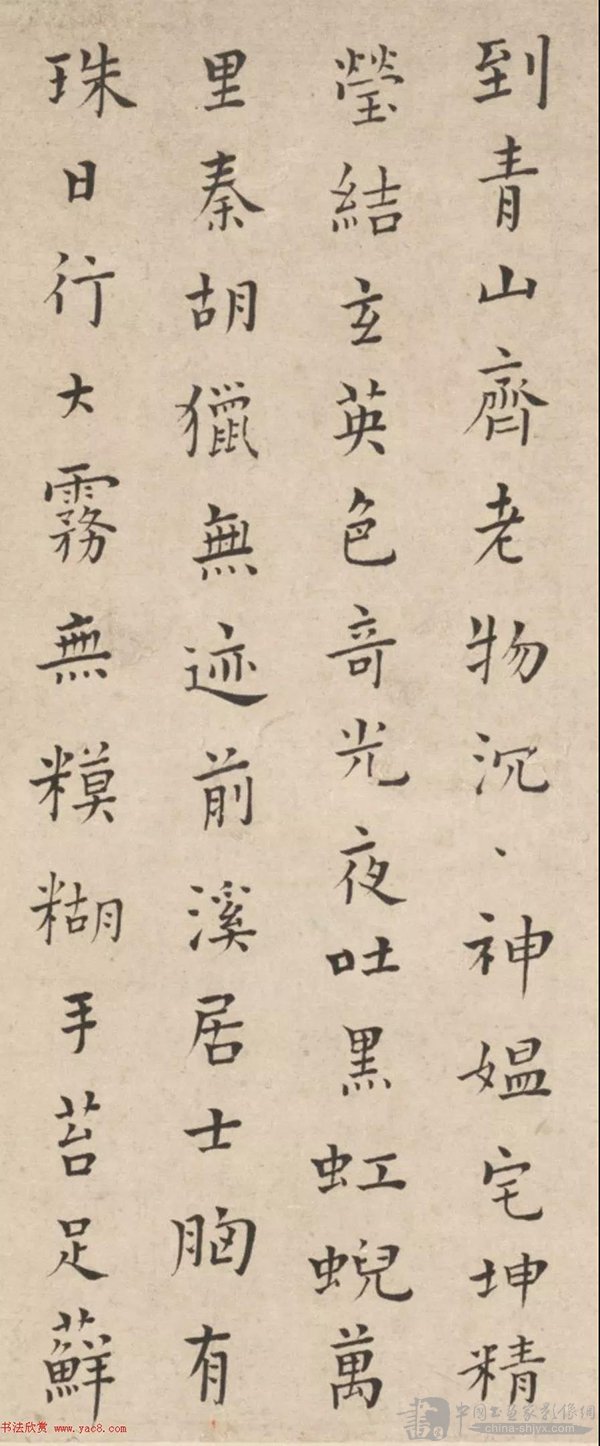 到青山齊老物沉、神媪宅坤精
瑩結玄英色奇光夜吐黑虹蜺萬
里秦胡獵無迹前溪居士胸有
珠日行大霧無糢糊手苔足蘚
书法欣赏 www.yac8.com
中国书画家影像網
china-shjyx.com